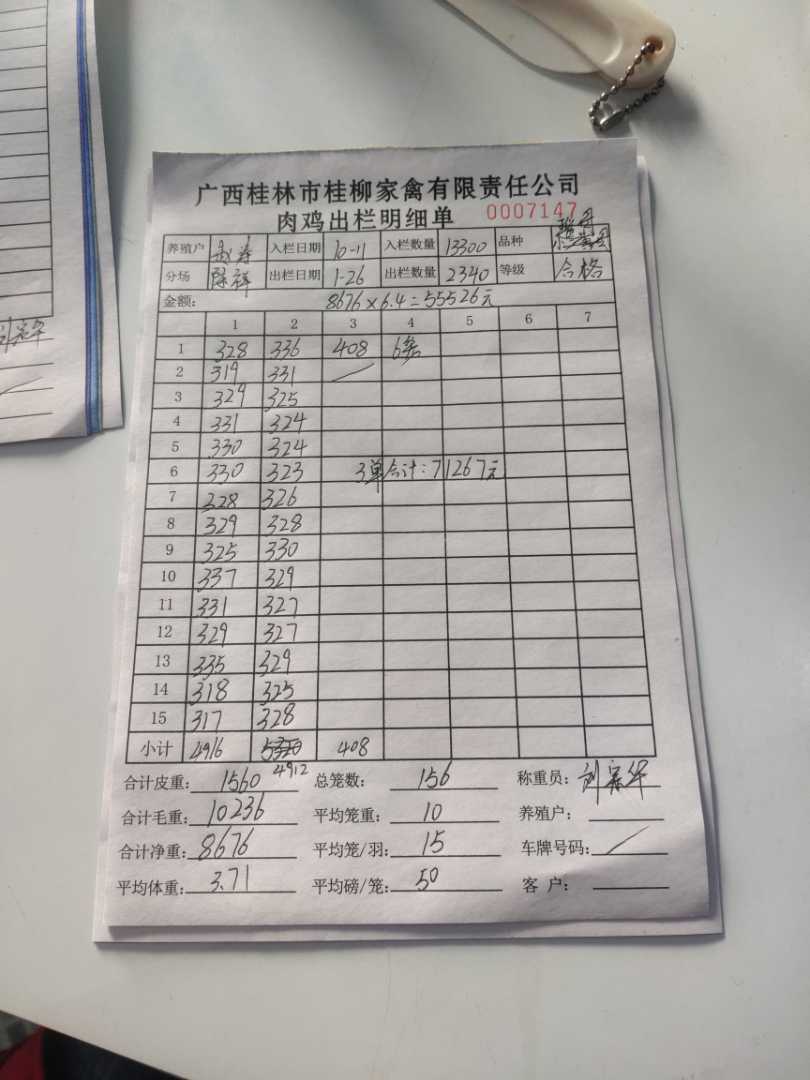 广西桂林市桂柳家禽有限责任公司
肉鸡出栏明细单 0007147
养殖户 入栏日期 10-11 入栏数量 13300 品种
分场 陈祥 出栏日期 1-26 出栏数量 2340 等级 合格
金额: 8676×6.4=55526元
1 2 3 4 5 6 7
1 328 336 408 6条
2 319 331
3 329 325
4 331 324
5 330 324
6 330 323 3单合计:71267元
7 328 326
8 329 328
9 325 330
10 337 329
11 331 327
12 329 327
13 335 329
14 318 325
15 317 328
小计 4916 408
4912
合计皮重: 1560 总笼数: 156 称重员:
合计毛重: 10236 平均笼重: 10 养殖户:
合计净重: 8676 平均笼/羽: 15 车牌号码:
平均体重: 3.71 平均磅/笼: 50 客户: